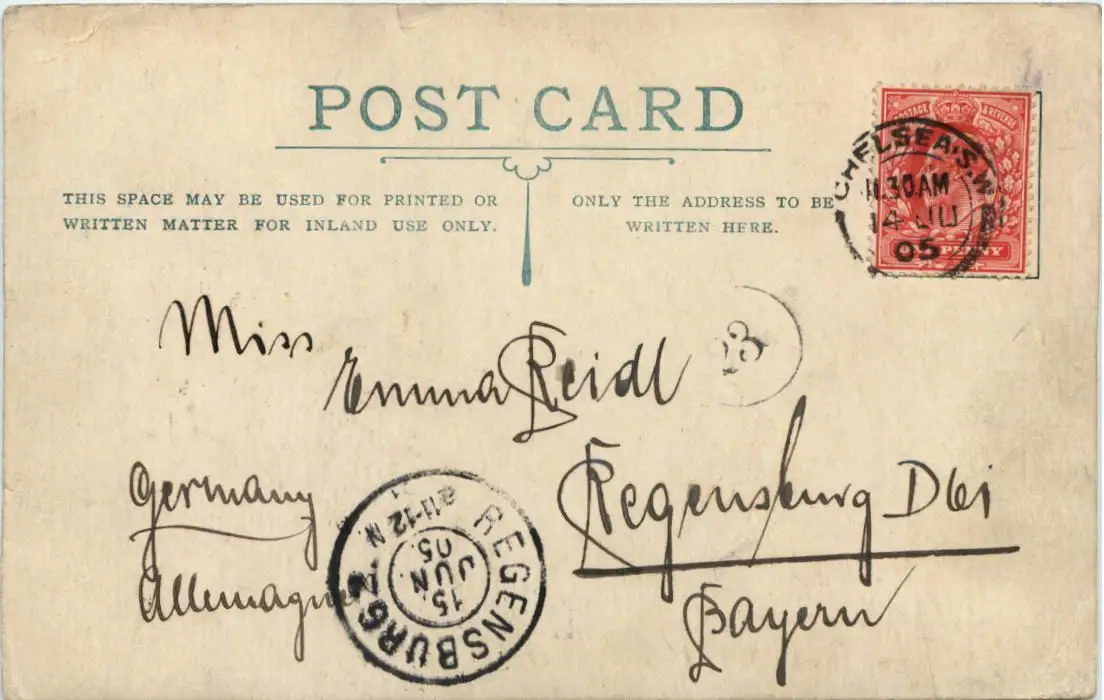 POST CARD
THIS SPACE MAY BE USED FOR PRINTED OR
WRITTEN MATTER FOR INLAND USE ONLY.
ONLY THE ADDRESS TO BE
WRITTEN HERE.
POSTAGE & REVENUE
CHELSEA.S.W.
11.30AM
14 JU
05
PENNY
Miss
Emma Reidl
23
Regensburg D61
Bayern
Germany
Allemagne
REGENSBURG 2.
15
JUN
05
11-12 N